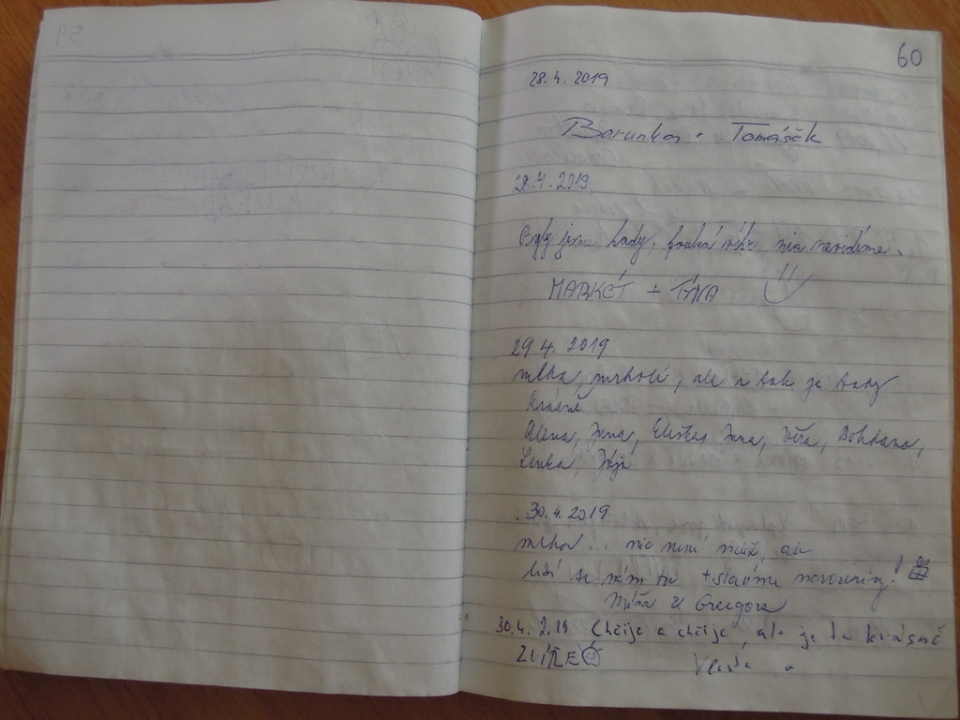 59
60
28.4.2019
Barunka + Tomášek
28.4.2019
Byly jsme tady, fouká vítr, nic nevidíme.
MARKÉT + TÝNA
29 4. 2019
mlha, mrholí, ale i tak je tady
krásně
Alena, Jana, Eliška, Jana, Věra, Bohdana,
Lenka, Jája
30.4.2019
mlha... nic není vidět, ale
líbí se nám tu + slavíme narozeniny!
Míša & Gregora
30.4. 2019 Chčije a chčije, ale je tu krásně
Vlasta a